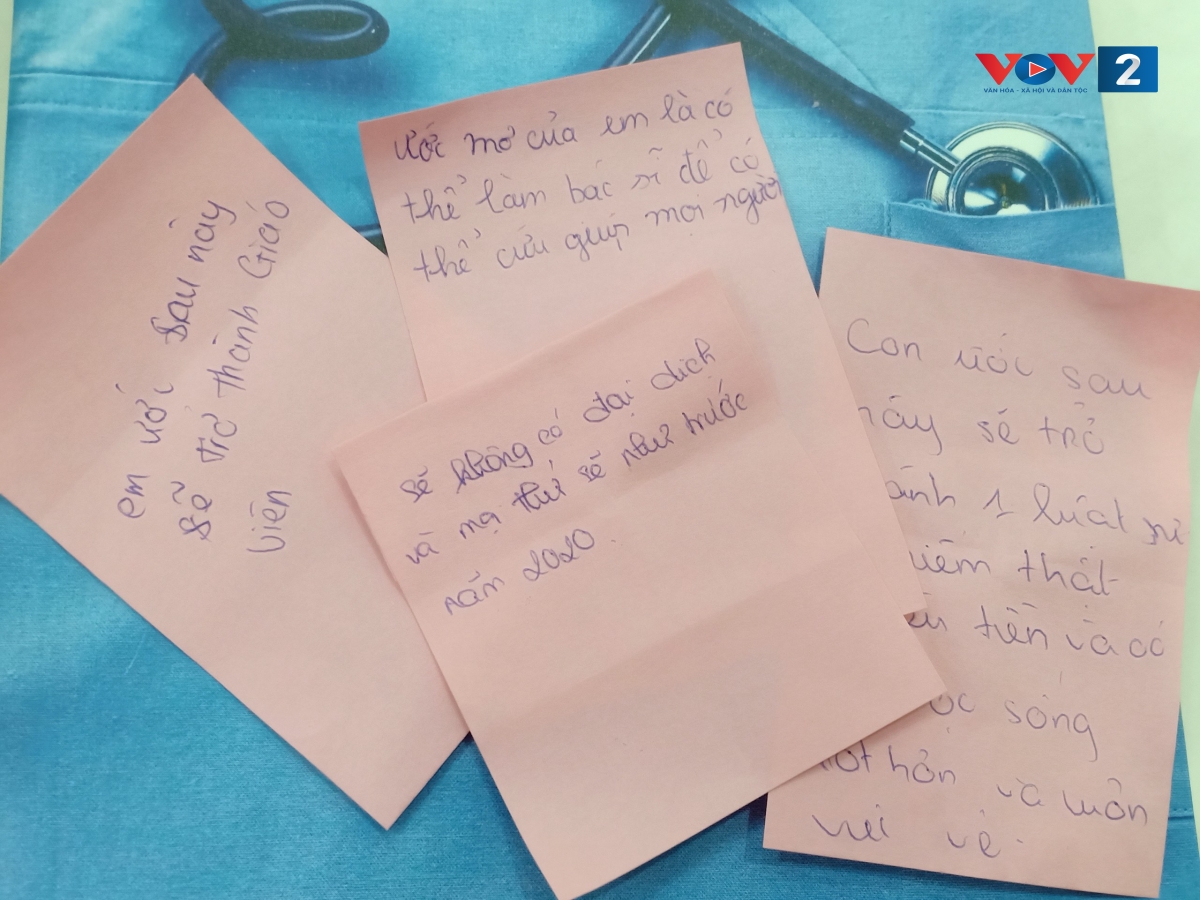 VOV 2
VĂN HÓA - XÃ HỘI VÀ DÂN TỘC
em ước sau này
sẽ trở thành Giáo
viên
Ước mơ của em là có
thể làm bác sĩ để có
thể cứu giúp mọi người
sẽ không có đại dịch
và mọi thứ sẽ như trước
năm 2020.
Con ước sau
này sẽ trở
ành 1 luật sư
iếm thật
tiền và có
sống
tốt hơn và luôn
vui vẻ.